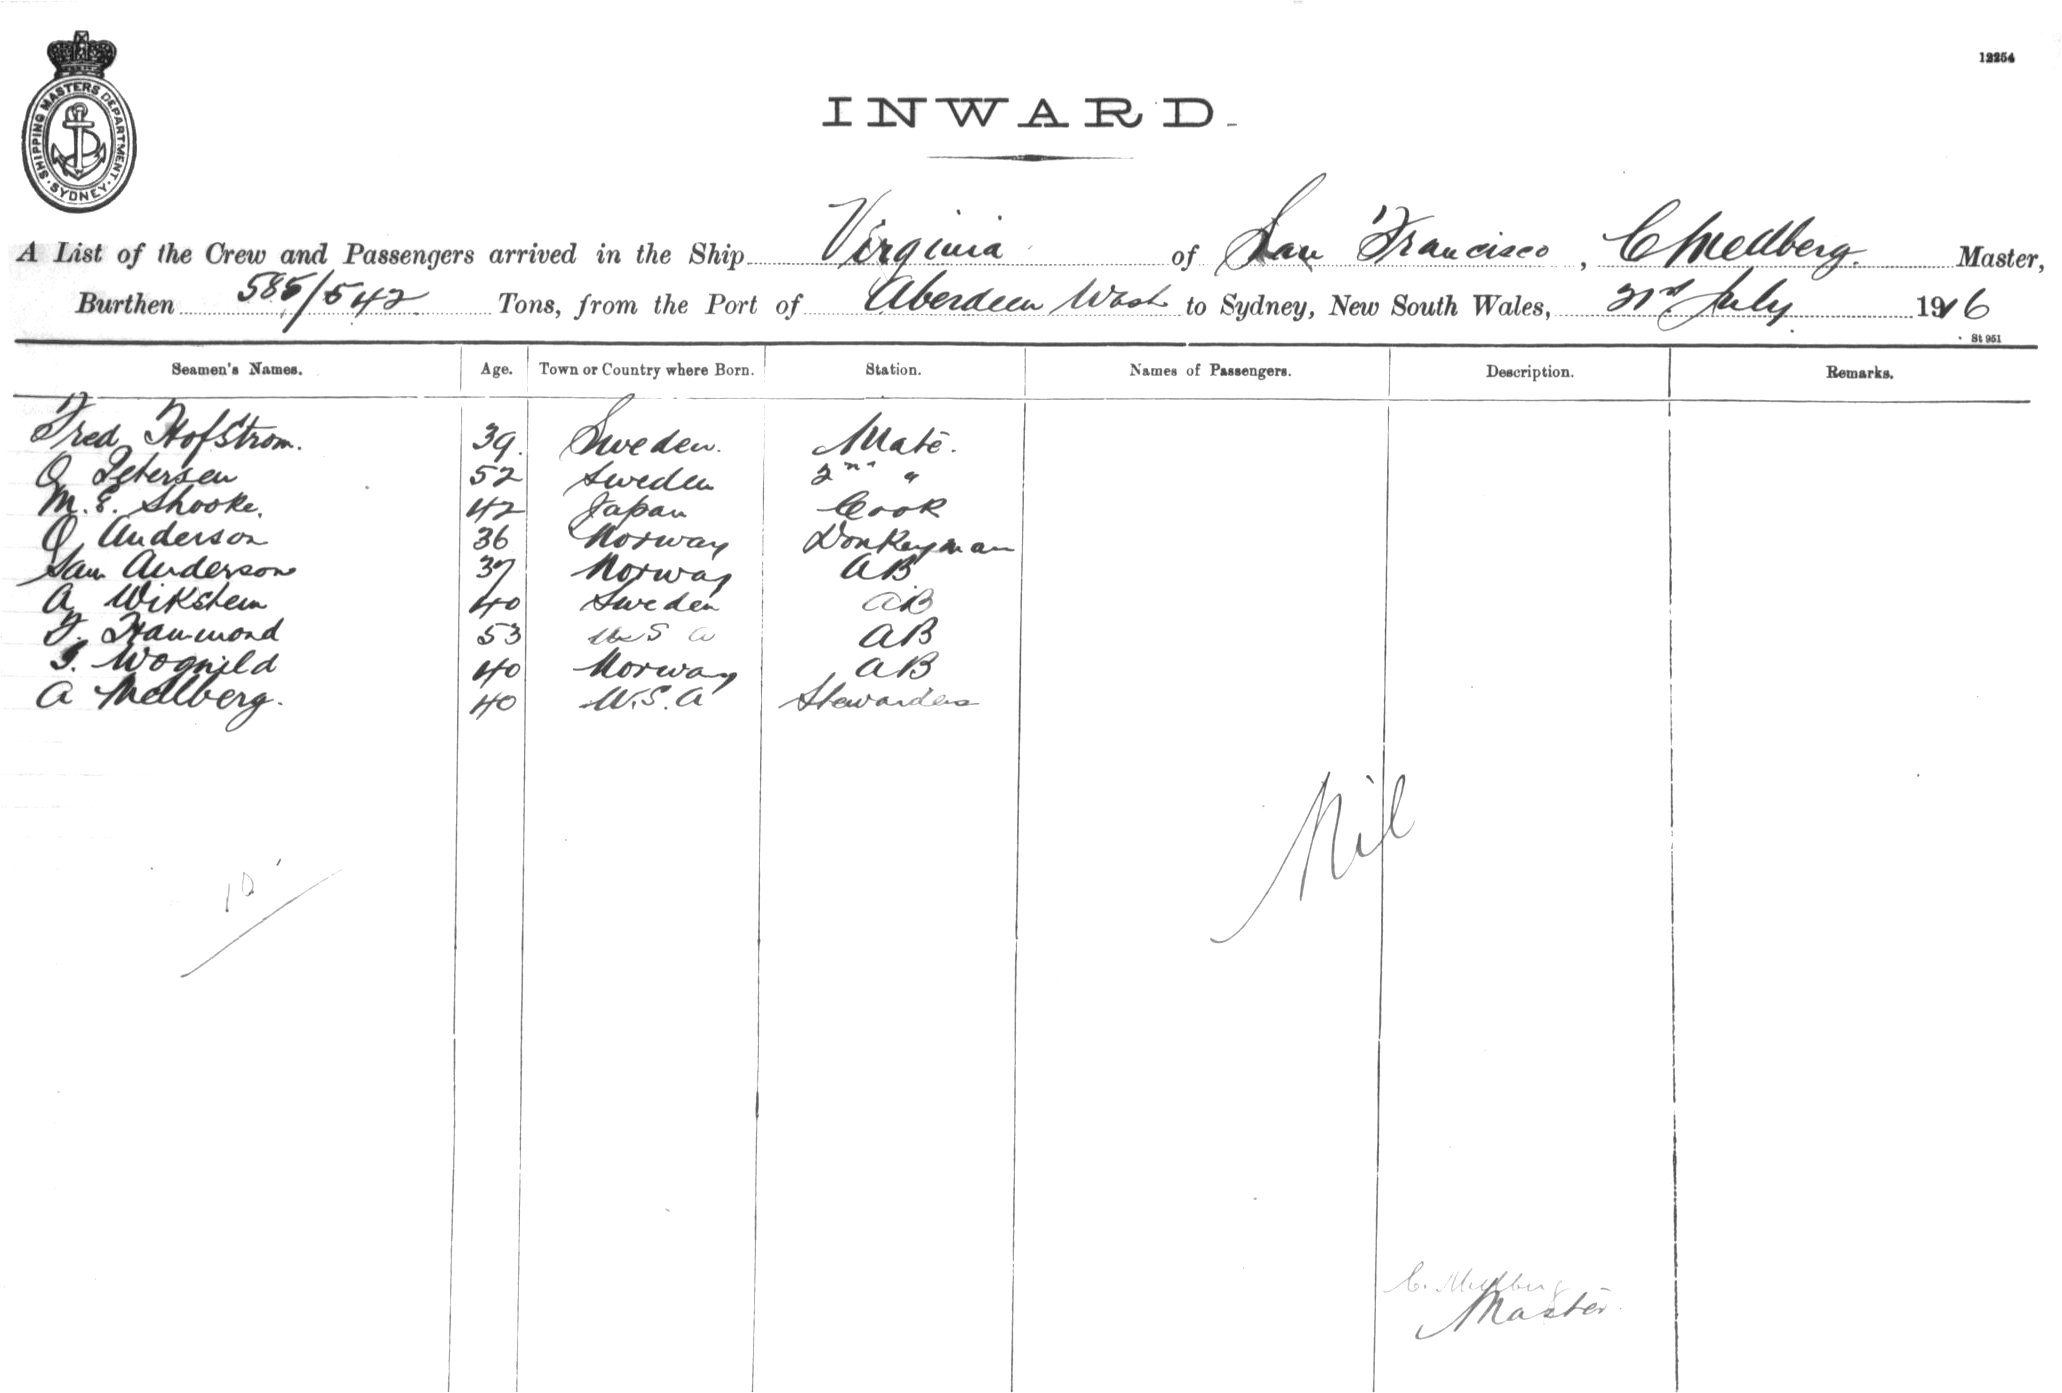 SHIPPING MASTERS DEPARTMENT · SYDNEY ·
12254
INWARD.
A List of the Crew and Passengers arrived in the Ship Virginia of San Francisco, C Mellberg. Master,
Burthen 585/542 Tons, from the Port of Aberdeen Wash to Sydney, New South Wales, July 1916
St 951
Seamen's Names. Age. Town or Country where Born. Station. Names of Passengers. Description. Remarks.
Fred Hofstrom. 39. Sweden. Mate.
O Petersen 52 Sweden 2nd "
M. E. Shooke. 42 Japan Cook
O Anderson 36 Norway Donkeyman
Sam Anderson 37 Norway AB
A Wikstein 40 Sweden AB
F. Hammond 53 U S A AB
Wognild 40 Norway AB
A Mellberg. 40 U.S.A Stewardess
Nil
10
C. Mellberg
Master.